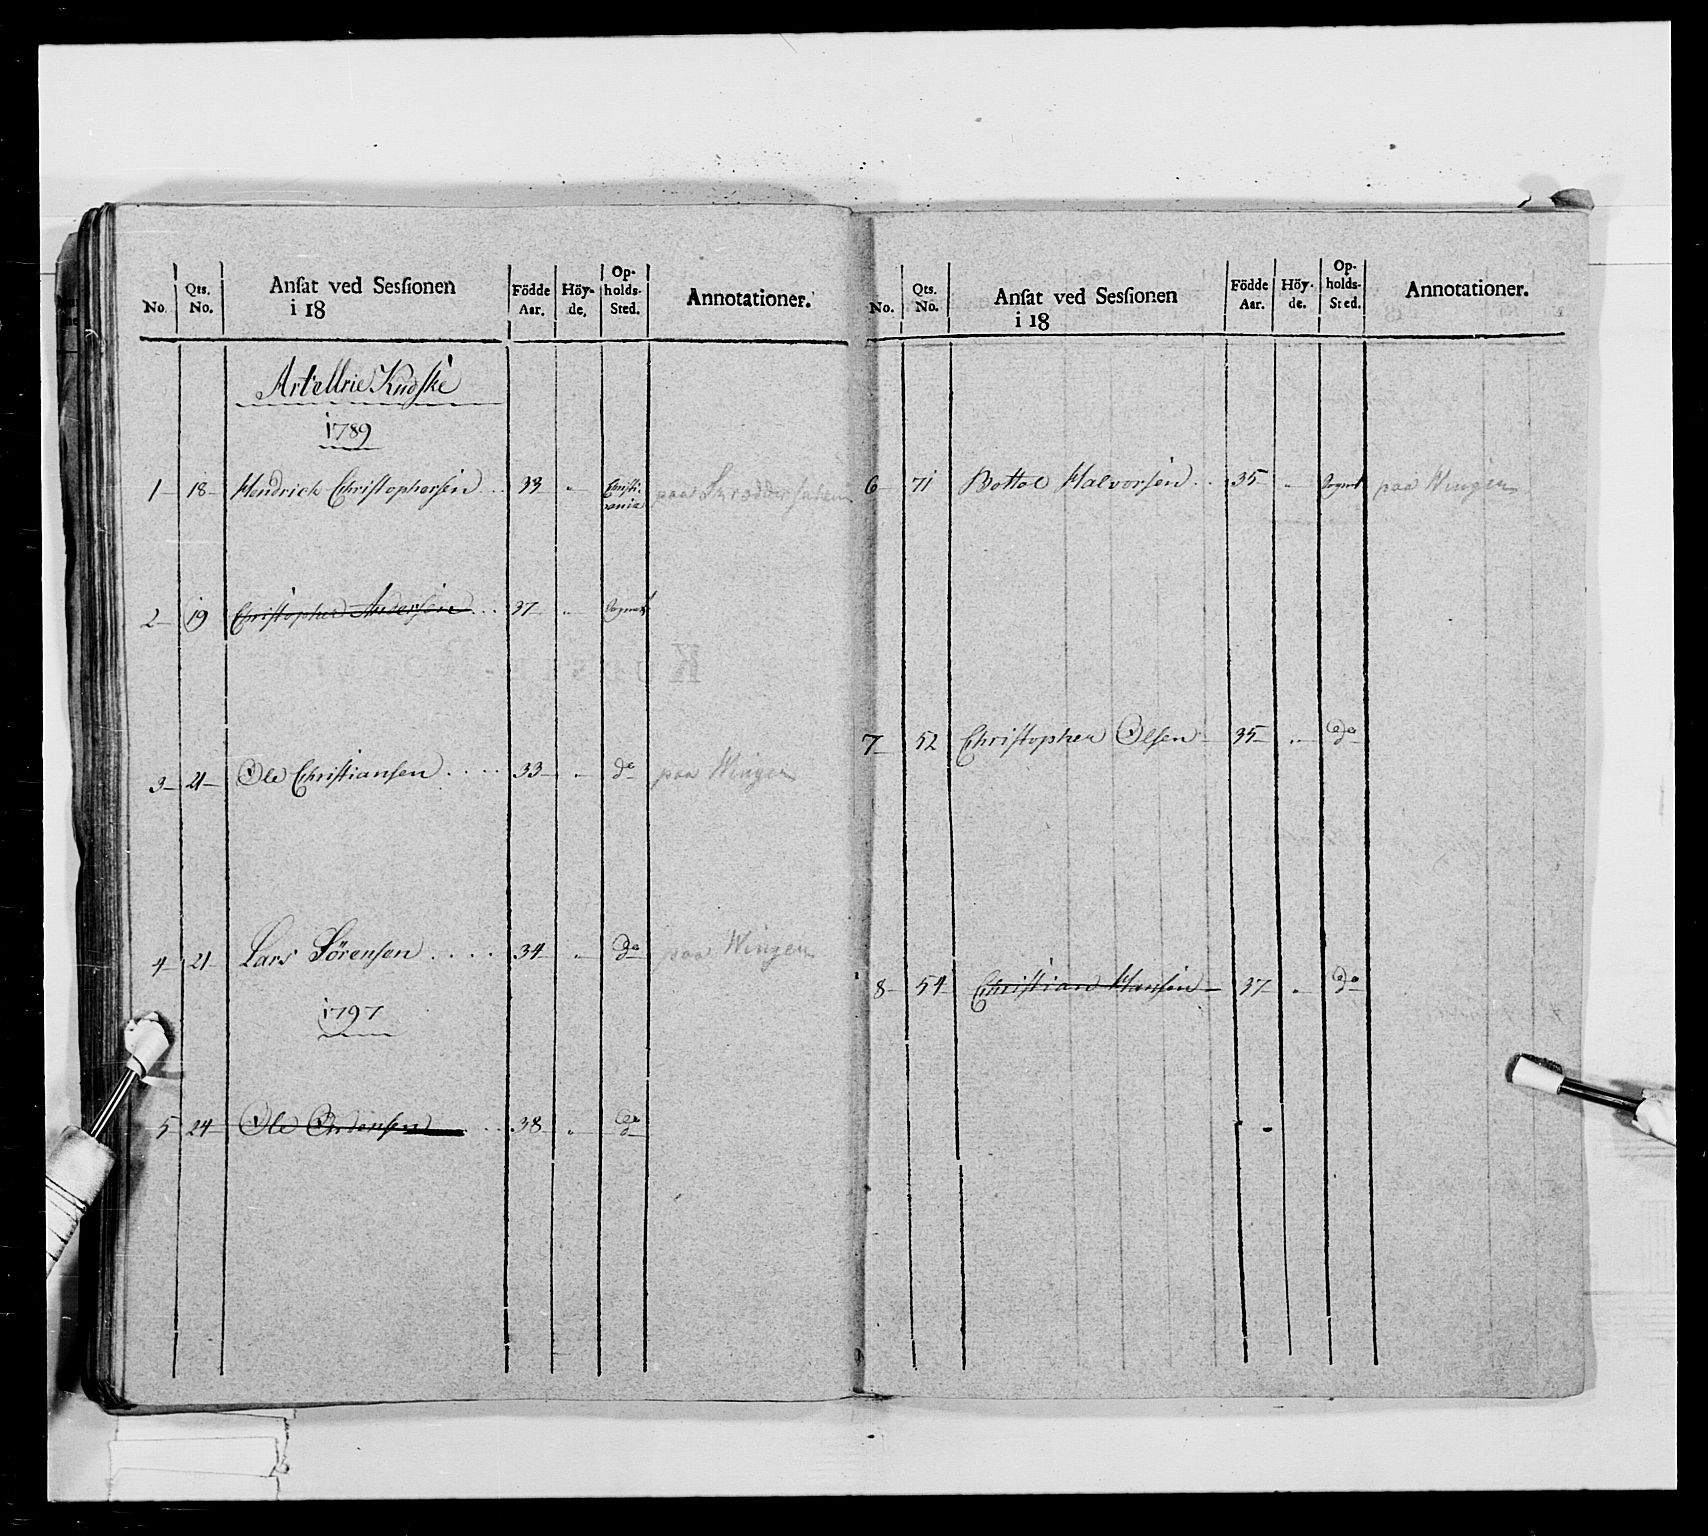 No. Qts. No. Ansat ved Sessionen i 18 Födde Aar. Höy-de. Op-holds-Sted. Annotationer.
Artellrie Kudske
1789
1 18 Hendrick Christophersen .. 33 " Christi-ania paa
2 19 Christopher Andersen ... 37 "
3 21 Ole Christiansen .... 33 " do paa Wingen
4 21 Lars Sörensen .... 34 " do paa Wingen
1797
5 24 Ole 38 " do
No. Qts. No. Ansat ved Sessionen i 18 Födde Aar. Höy-de. Op-holds-Sted. Annotationer.
6 71 Halvorsen .. 35 " paa Wingen
7 52 Christopher Olsen 35 " do
8 54 Christian Hansen 37 " do